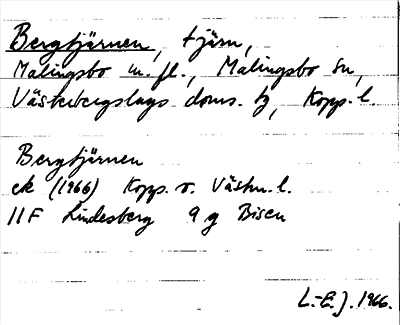 Bergtjärnen, tjärn,
Malingsbo m.fl., Malingsbo sn,
Västerbergslags doms. tg, Kopp. l.
Bergtjärnen
ek (1966) Kopp. o. Västm. l.
11F Lindesberg 9 g Bisen
L.-E. J. 1966.